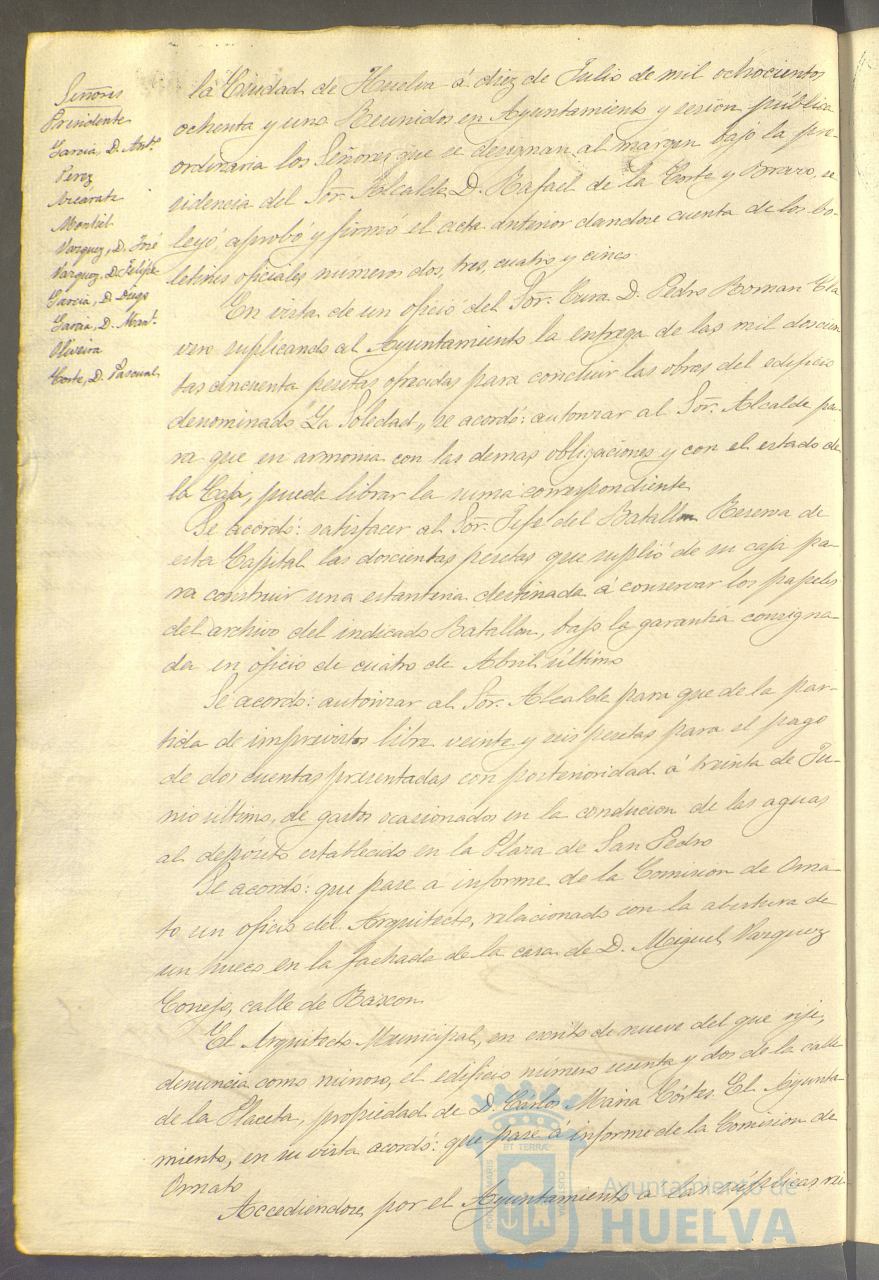 Señores
Presidente
Garcia, D. Ant.º
Perez
Azcarate
Montiel
Vazquez, D. José
Vazquez, D. Felipe
Garcia, D. Diego
Garcia, D. Man.l
Oliveira
Corte, D. Pascual
la Ciudad de Huelva á diez de Julio de mil ochocientos
ochenta y uno Reunidos en Ayuntamiento y sesion pública
ordinaria los Señores que se designan al margen bajo la pre-
sidencia del Sor. Alcalde D. Rafael de la Corte y Bravo, se
leyó, aprobó y firmó el acta anterior dandose cuenta de los bo-
letines oficiales números dos, tres, cuatro y cinco
En vista de un oficio del Sor. Cura D. Pedro Roman Cla
vero suplicando al Ayuntamiento la entrega de las mil doscien
tas cincuenta pesetas ofrecidas para concluir las obras del edificio
denominado "La Soledad„ se acordó: autorizar al Sor. Alcalde pa-
ra que en armonia con las demas obligaciones y con el estado de
la Caja, pueda librar la suma correspondiente
Se acordó: satisfacer al Sor. Jefe del Batallon Reserva de
esta Capital las doscientas pesetas que suplió de su caja pa-
ra construir una estanteria destinada a conservar los papeles
del archivo del indicado Batallon, bajo la garantia consigna-
da en oficio de cuatro de Abril último
Se acordó: autorizar al Sor. Alcalde para que de la par-
tida de imprevistos libre veinte y seis pesetas para el pago
de dos cuentas presentadas con posterioridad á treinta de Ju-
nio último, de gastos ocasionados en la conducion de las aguas
al depósito establecido en la Plaza de San Pedro
Se acordó: que pase a informe de la Comision de Orna-
to un oficio del Arquitecto, relacionado con la abertura de
un hueco en la fachada de la casa de D. Miguel Vazquez
Conejo, calle de Rascon
El Arquitecto Municipal, en escrito de nueve del que rije,
denuncia como ruinoso, el edificio número y dos de la calle
de la Placeta, propiedad de D. Carlos Maria Córtes. El Ayunta
miento, en su vista acordó: que pase á informe de la Comision de
Ornato
Accediendose por el Ayuntamiento a las súplicas
PORTUS MARIS
ET TERRAE
CUSTODIA
Ayuntamiento de
HUELVA